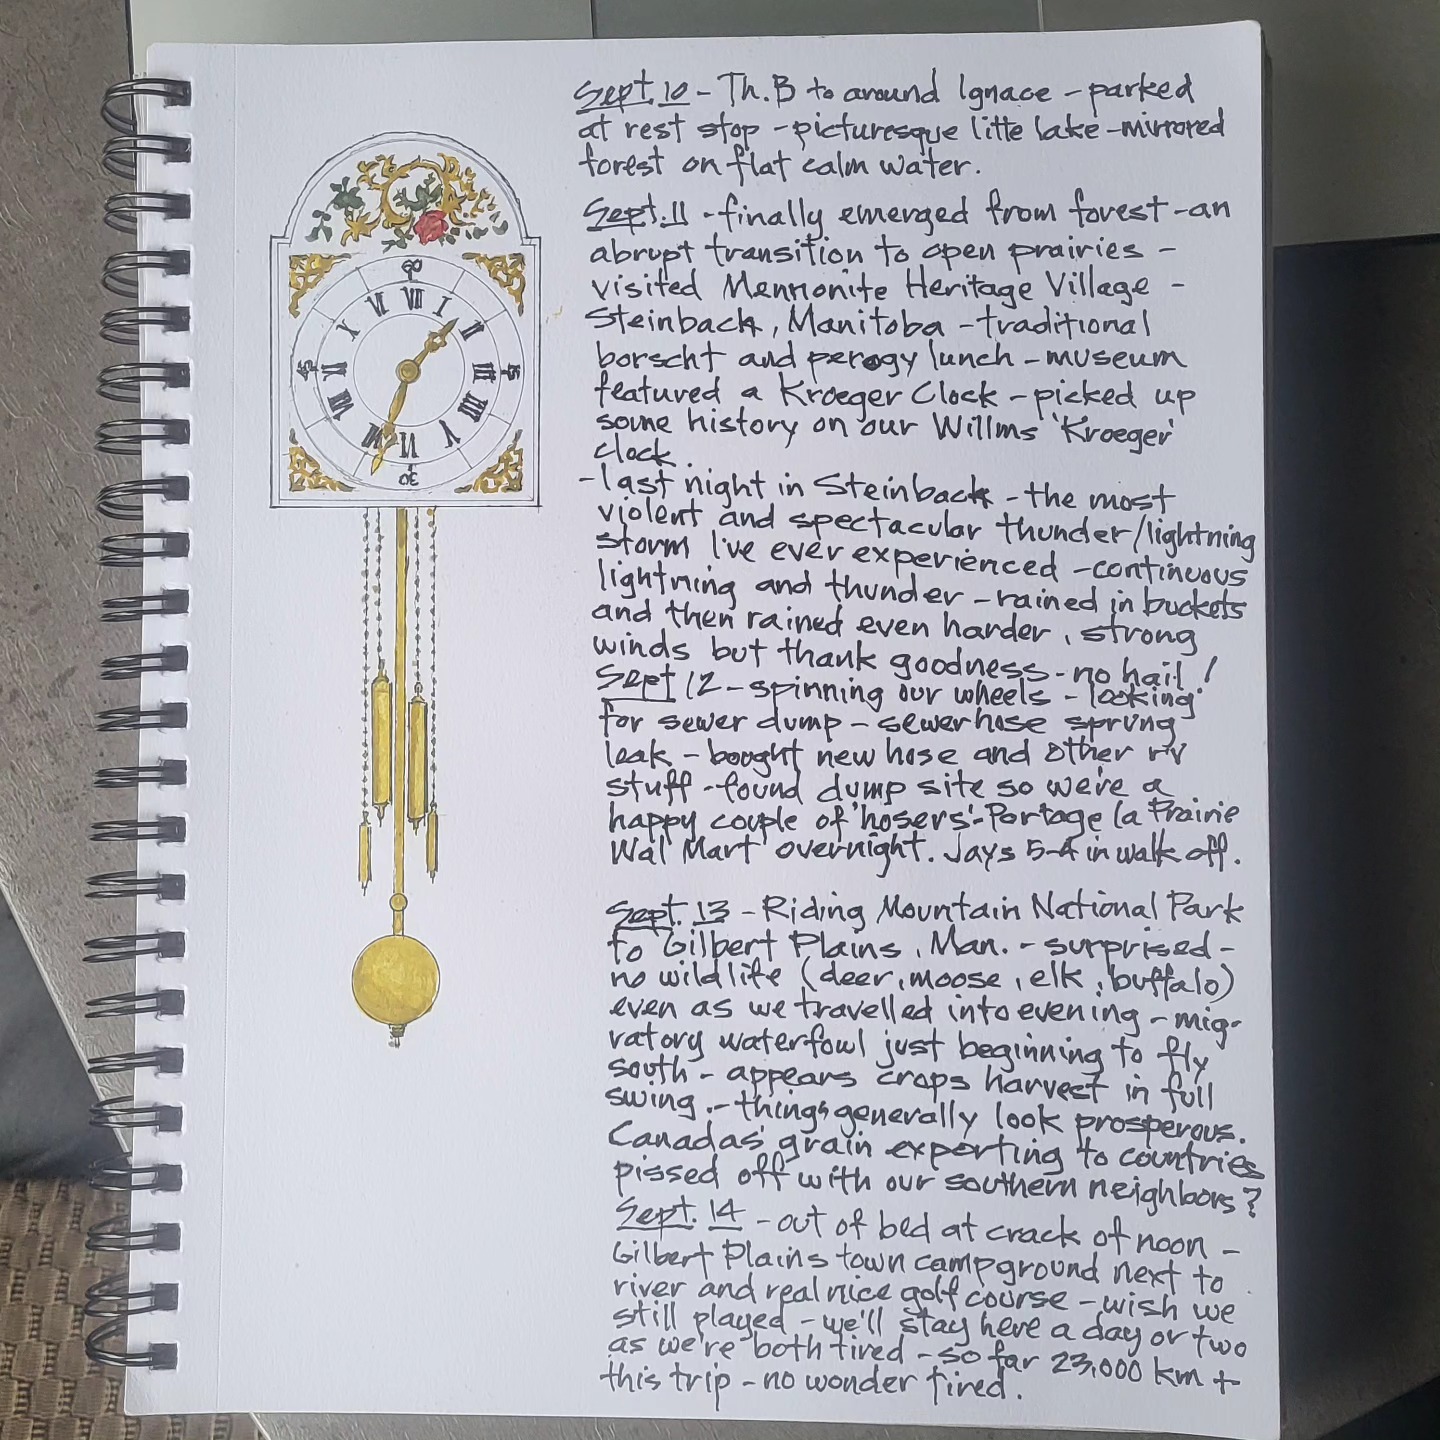 Sept. 10 - Th.B to around Ignace - parked
at rest stop - picturesque litte lake - mirrored
forest on flat calm water.
Sept. 11 - finally emerged from forest - an
abrupt transition to open prairies -
visited Mennonite Heritage Village -
Steinback, Manitoba - traditional
borscht and perogy lunch - museum
featured a Kroeger Clock - picked up
some history on our Willms 'Kroeger'
clock.
- last night in Steinback - the most
violent and spectacular thunder/lightning
storm I've ever experienced - continuous
lightning and thunder - rained in buckets
and then rained even harder, strong
winds but thank goodness - no hail!
Sept 12 - spinning our wheels - looking
for sewer dump - sewer hose sprung
leak - bought new hose and other rv
stuff - found dump site so we're a
happy couple of 'hosers' - Portage la Prairie
Wal Mart overnight. Jays 5-4 in walk off.
Sept. 13 - Riding Mountain National Park
to Gilbert Plains, Man. - surprised -
no wildlife (deer, moose, elk, buffalo)
even as we travelled into evening - mig-
ratory waterfowl just beginning to fly
south - appears crops harvest in full
swing. - things generally look prosperous.
Canadas' grain exporting to countries
pissed off with our southern neighbors?
Sept. 14 - out of bed at crack of noon -
Gilbert Plains town campground next to
river and real nice golf course - wish we
still played - we'll stay here a day or two
as we're both tired - so far 23,000 km +
this trip - no wonder tired.
60
XI VII I
X II
45 IX III 15
VIII IIII
VII VI V
30